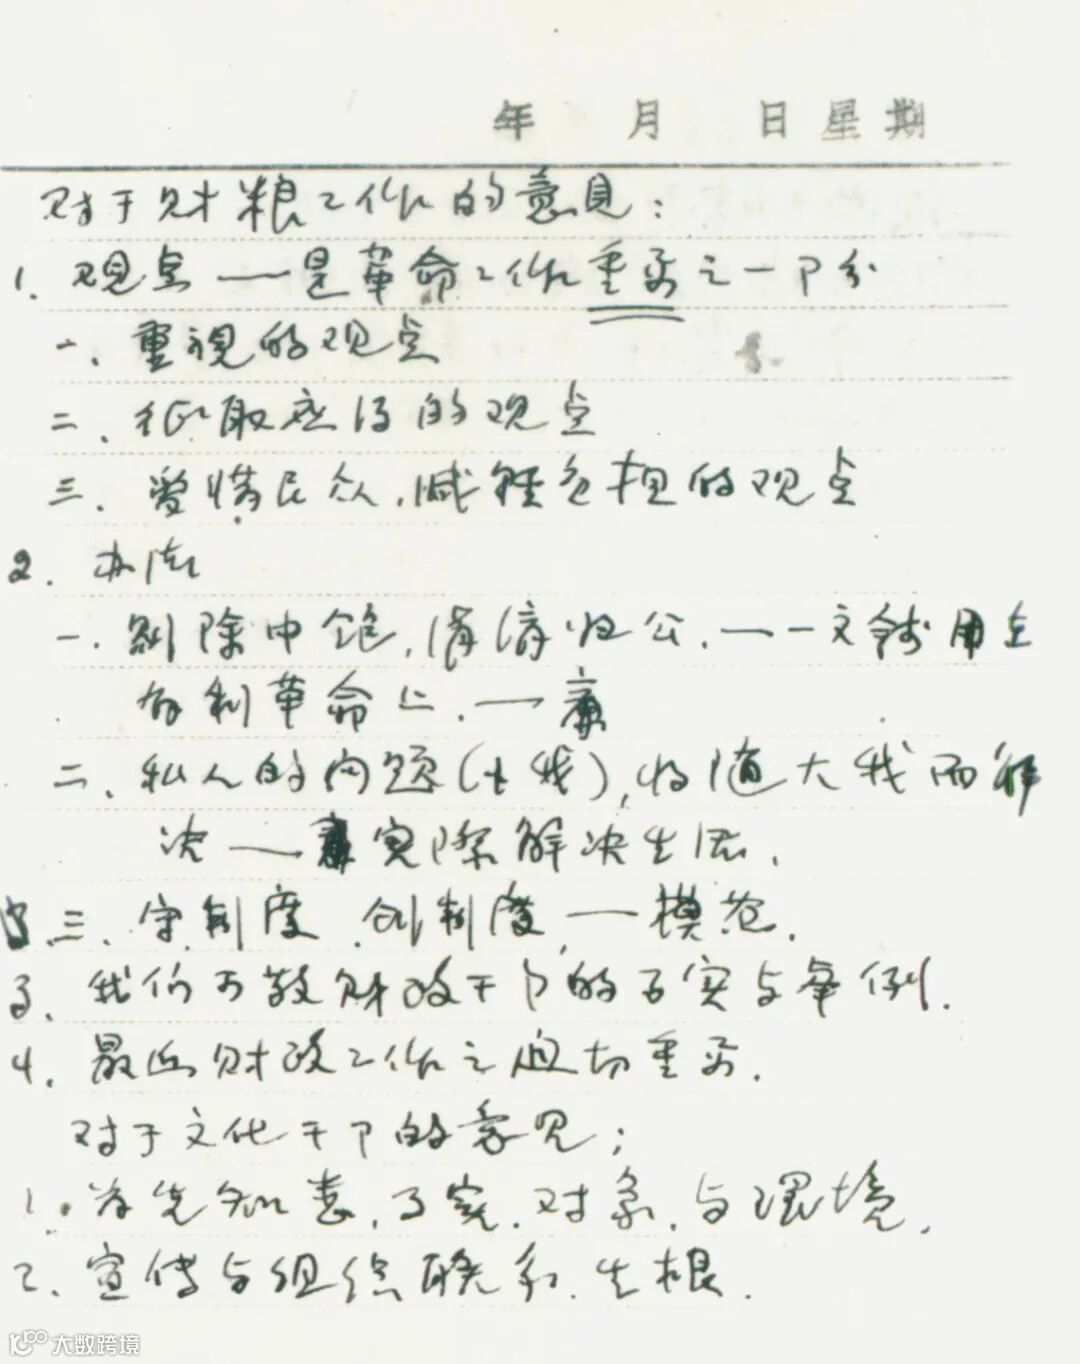 年 月 日 星期
对于财粮工作的意见：
1. 观点——是革命工作重要之一部分
一、重视的观点
二、征取应得的观点
三、爱惜民众，减轻负担的观点
2. 办法
一、剔除中饱，涓滴归公，——一文钱用在
有利革命上，——廉
二、私人的问题（小我），将随大我而解
决——实际解决生活，
三、守制度，创制度，——模范，
3. 我们可敬财政干部的事实与举例，
4. 最近财政工作之迫切重要，
对于文化干部的意见；
1. 首先知意，了实，对象，与环境，
2. 宣传与组织联系，生根，
大数跨境